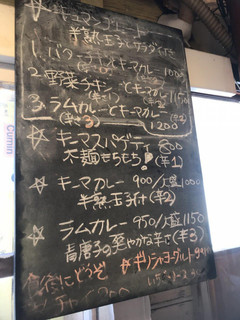 半熟玉子とサラダ付
1.バターチキンとキーマカレー 1000
2.野菜チキンとキーマカレー 1150
3.ラムカレーとキーマカレー
(辛さ3) 1200
☆キーマスパゲティ 800
太麺もちもち! (辛1)
☆キーマカレー 900/大盛1000
半熟玉子付 (辛2)
☆ラムカレー 950/大盛1150
青唐子の爽やかな辛さ(辛3)
☆ギリシャヨーグルト
Cumin